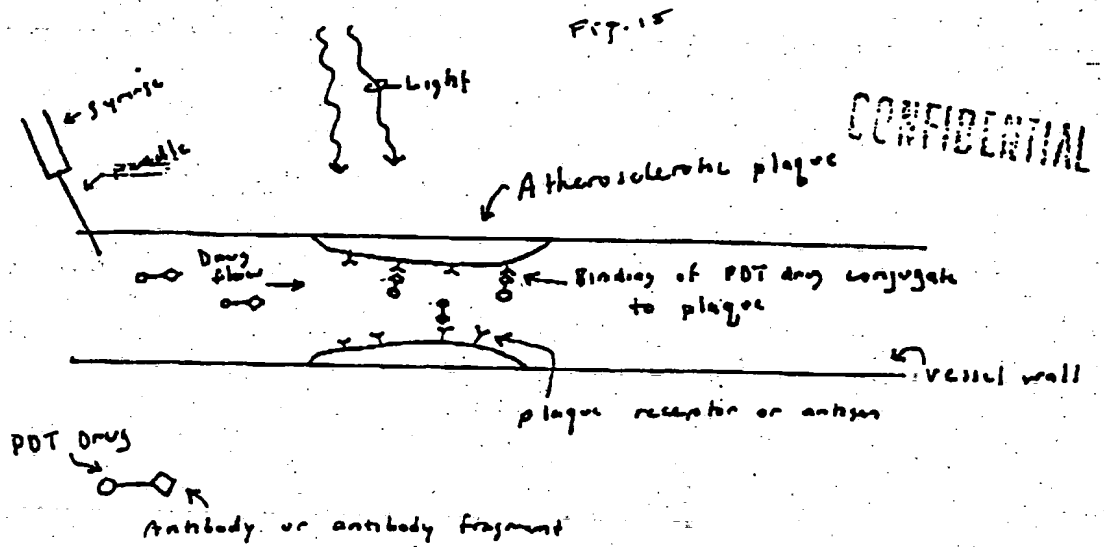 Fig. 15
CONFIDENTIAL
Syringe
needle
Light
Atherosclerotic plaque
Drug
flow
Binding of PDT drug conjugate
to plaque
vessel wall
plaque receptor or antigen
PDT Drug
Antibody or antibody fragment